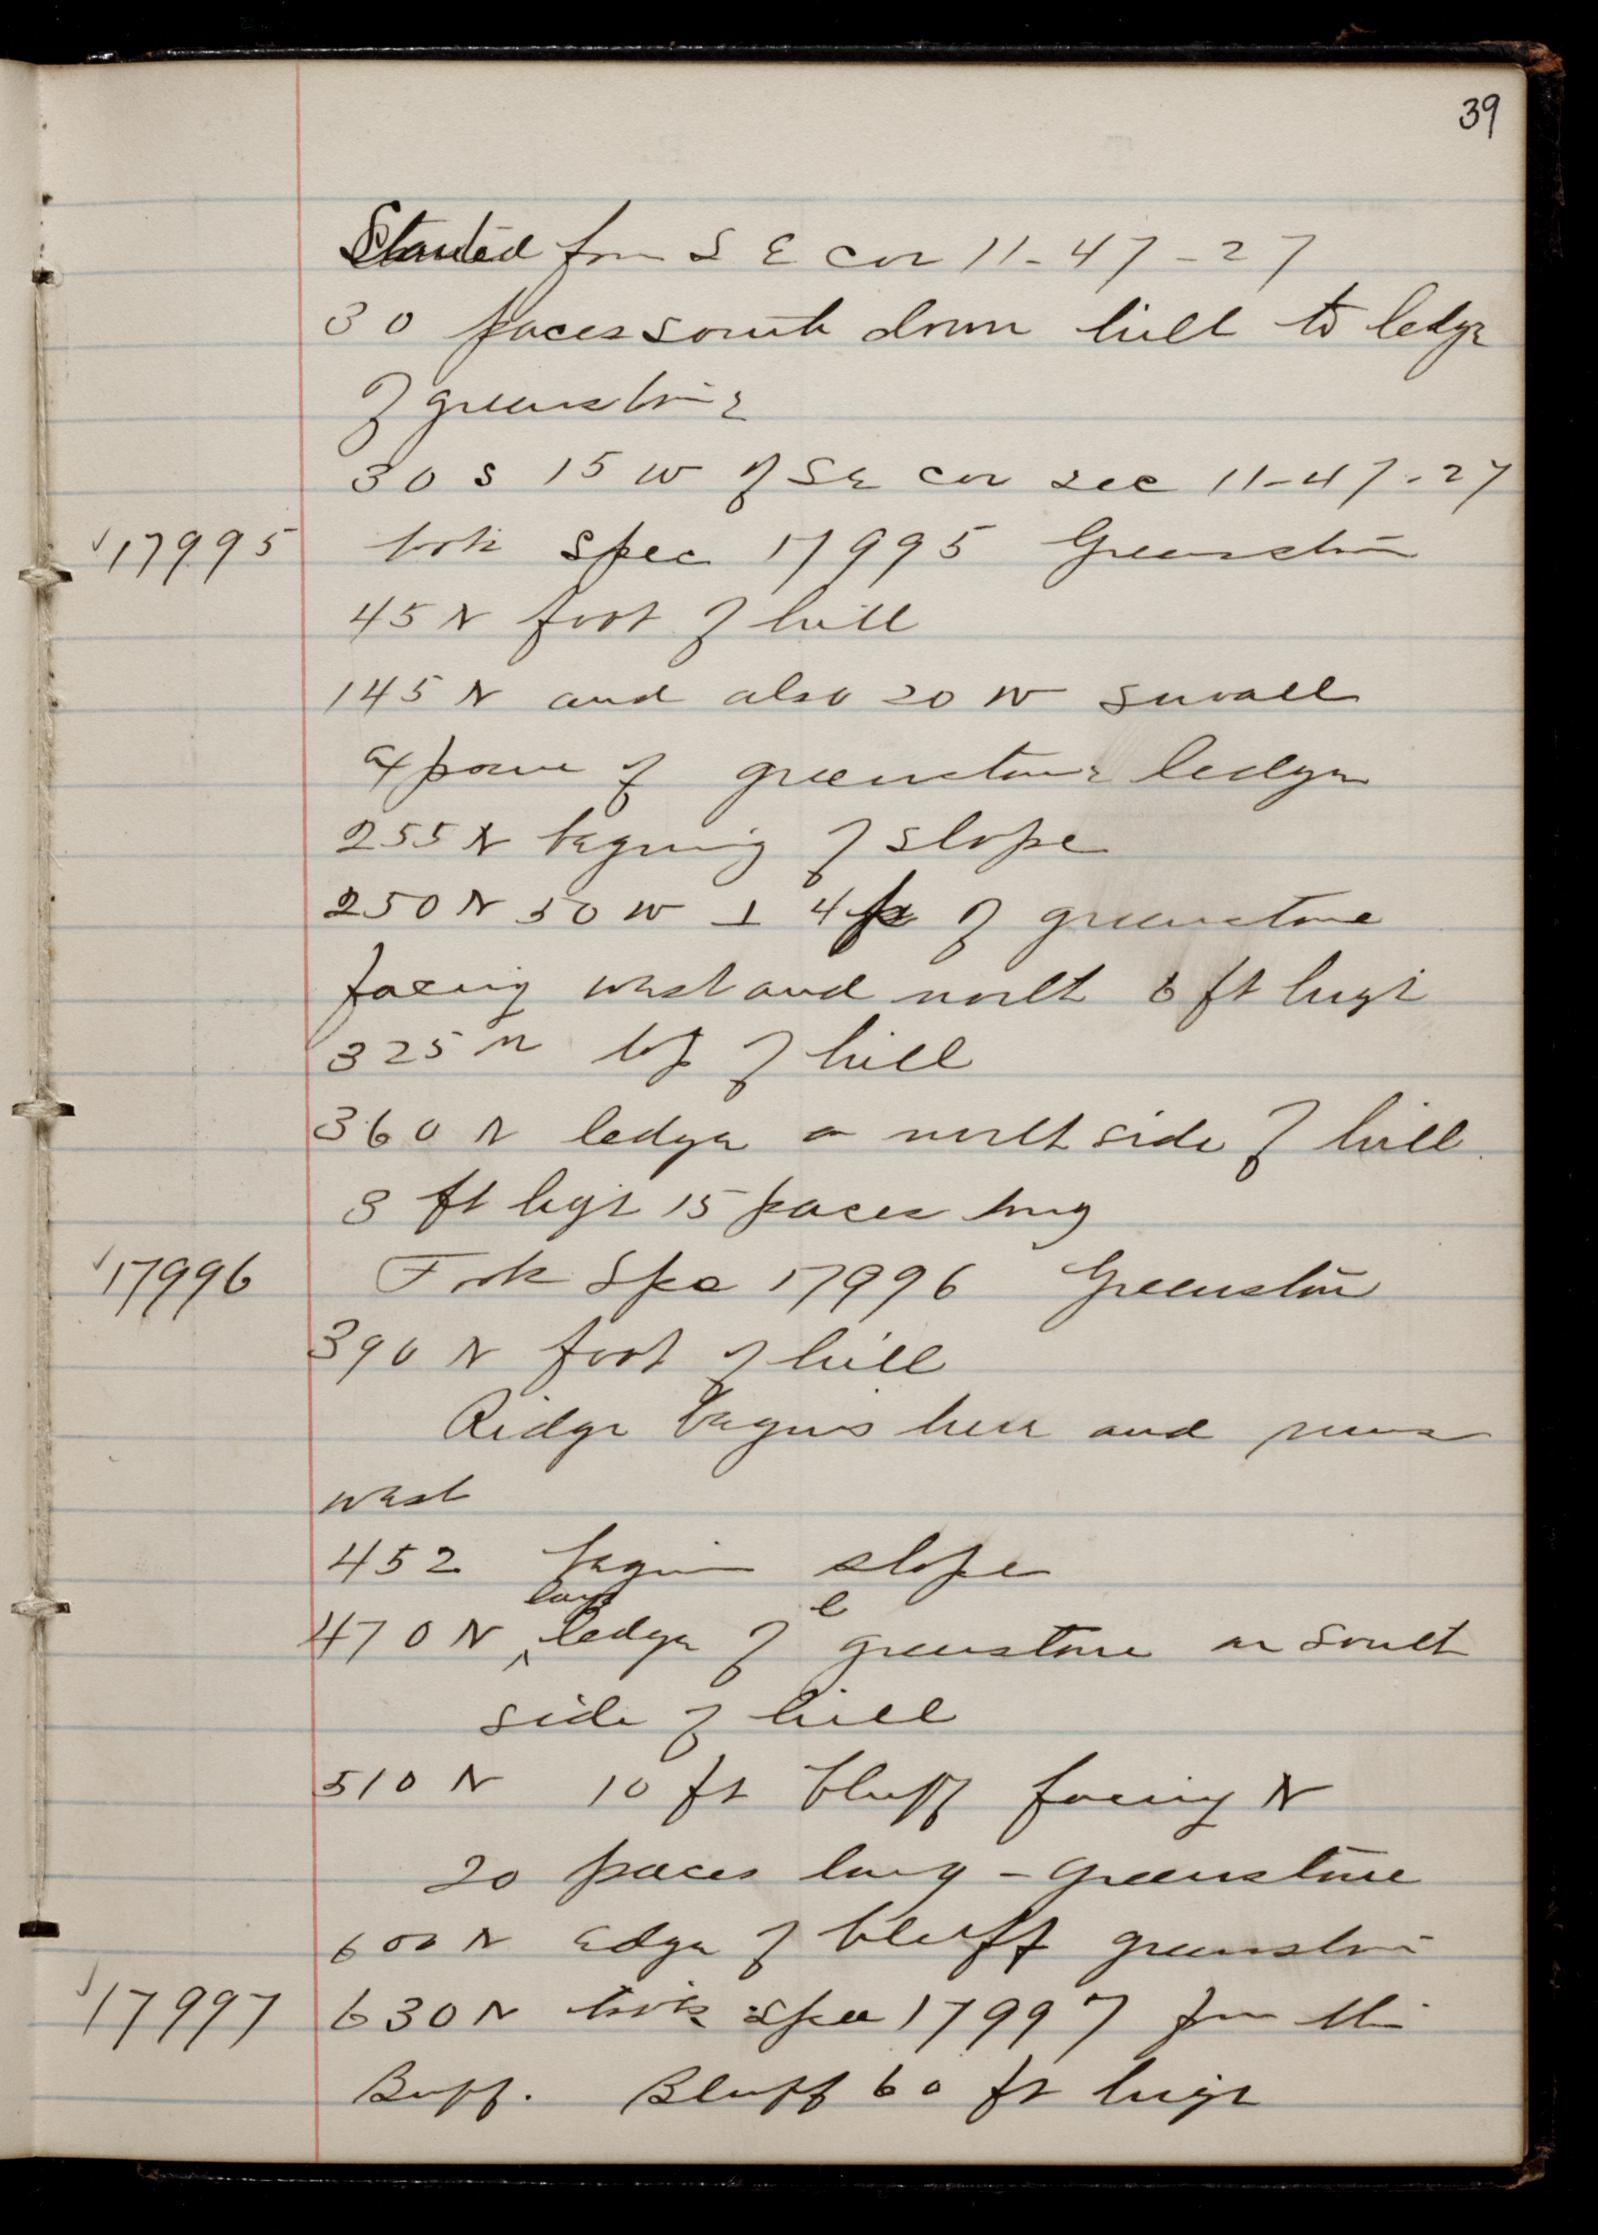 39
Started from S E cor 11-47-27
30 paces south down hill to ledge
of greenstone
30 S 15 W of SE cor sec 11-47-27
17995 took spec 17995 Greenstone
45 N foot of hill
145 N and also 20 W small
exposure of greenstone ledge
255 N begining of slope
250 N 50 W ⊥ 4 of greenstone
facing west and north 6 ft high
325 N top of hill
360 N ledge on north side of hill
8 ft high 15 paces long
17996 Took Spec 17996 Greenstone
390 N foot of hill
Ridge begins here and runs
west
452 begin slope
470 N large ledge of greenstone on south
side of hill
510 N 10 ft bluff facing N
20 paces long - greenstone
600 N edge of bluff greenstone
17997 630 N took spec 17997 from this
Buff. Bluff 60 ft high